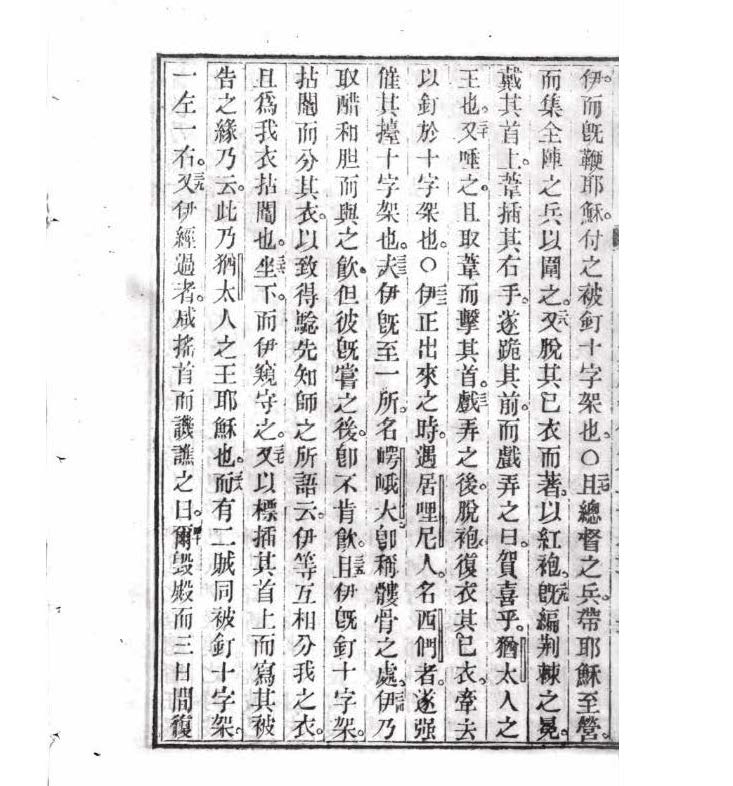 伊而旣鞭耶穌付之被釘十字架也。〇二七且總督之兵帶耶穌至營。
而集全陣之兵以圍之。二八又脫其己衣而著以紅袍。二九旣編荆棘之冕。
戴其首上。葦插其右手。遂跪其前而戲弄之曰。賀喜乎。猶太人之
王也。三十又唾之。且取葦而擊其首。三一戲弄之後。脫袍復衣其己衣。牽去
以釘於十字架也。〇三二伊正出來之時。遇居哩尼人。名西們者。遂强
催其擡十字架也。三三夫伊旣至一所。名崿峨大卽稱髏骨之處。三四伊乃
取醋和胆而與之飮。但彼旣嘗之後。卽不肯飮。三五且伊旣釘十字架。
拈鬮而分其衣。以致得騐先知師之所語云。伊等互相分我之衣。
且爲我衣拈鬮也。三六坐下。而伊窺守之。三七又以標插其首上而寫其被
告之緣乃云。此乃猶太人之王耶穌也。三八而有二賊同被釘十字架。
一左一右。三九又伊經過者。咸搖首而譏譙之曰。四十爾毁殿而三日間復